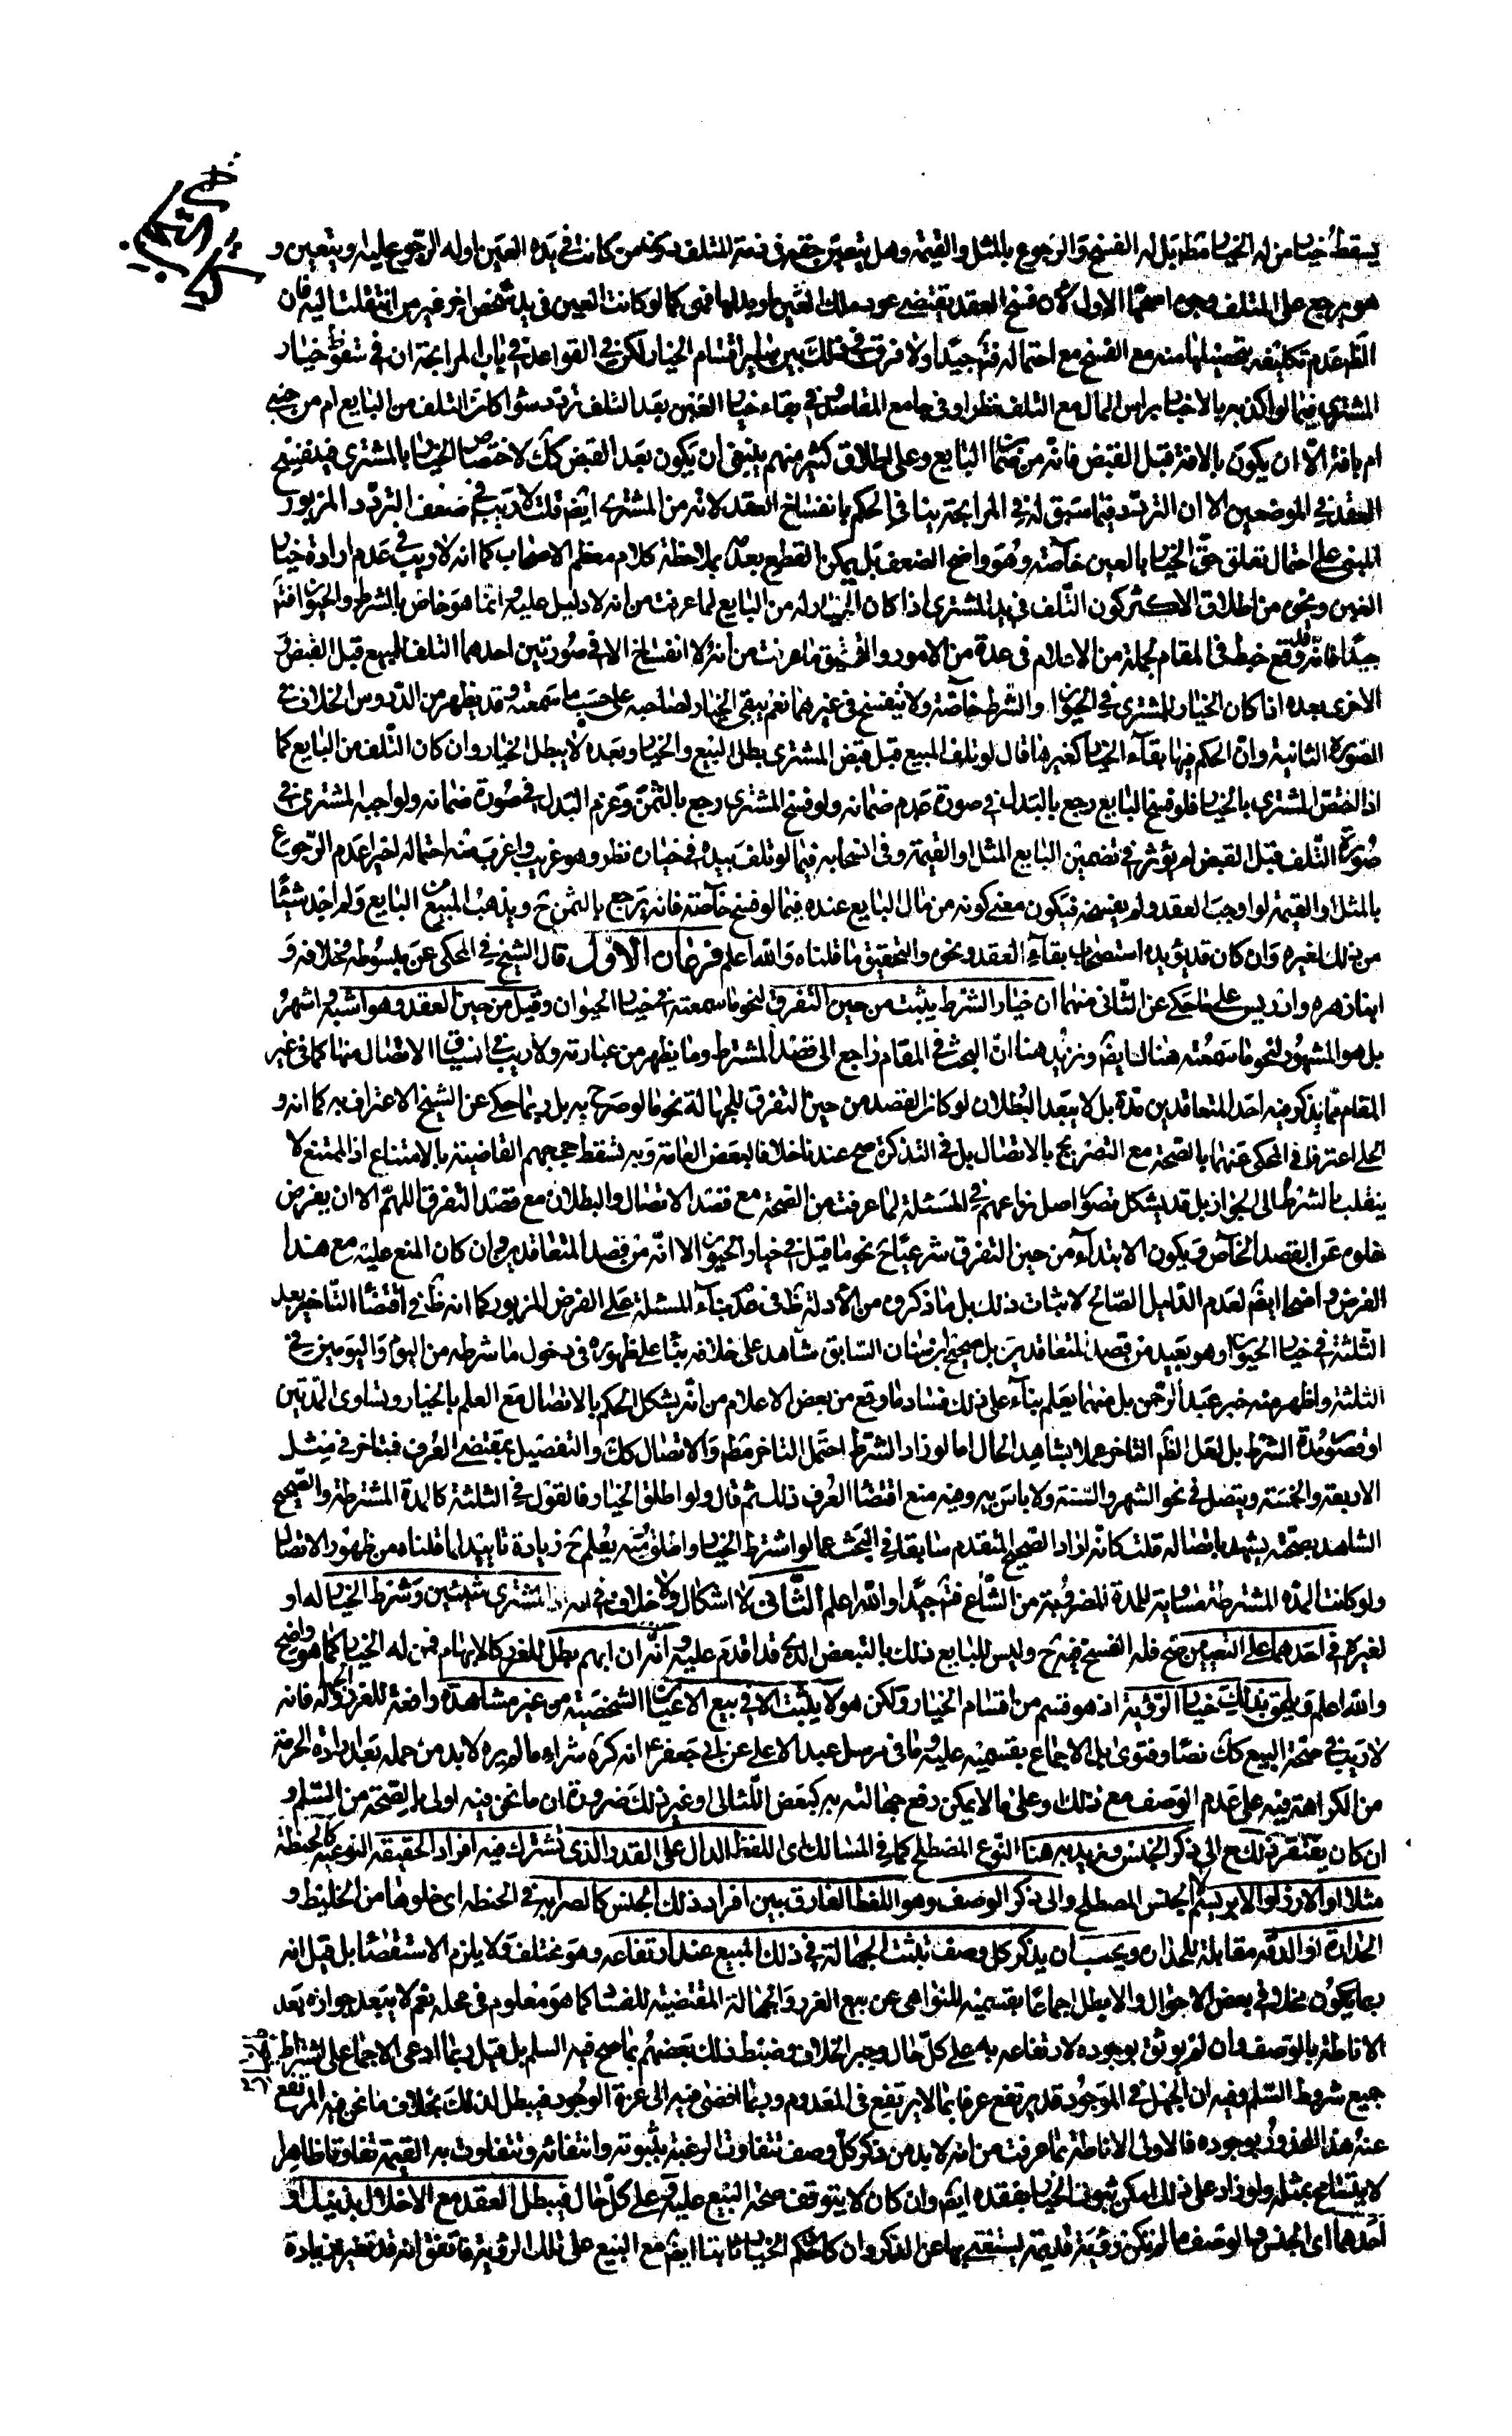 يسقط خيار من له الخيار مط بل له الفسخ والرجوع بالمثل والقيمة وهل يتعين حقه في ذمة المتلف من كانت في يده العين او له الرجوع عليه ويتعين و
هو يرجع على المتلف وجوه اصحها الاول لأن فسخ العقد يقتضي عود ملك العين او بدلها كما لو كانت العين في يد شخص اخر غير من انتقلت اليه فان
الظ عدم تكليفه بتحصيلها منه مع الفسخ مع احتماله فتأمل جيدا ولا فرق في ذلك بين ساير اقسام الخيار لكن في القواعد في باب المرابحة ان في سقوط خيار
المشتري فيما لو اكذبه بالاخبار براس المال مع التلف نظرا وفي جامع المقاصد في بقاء خيار الغبن بعد التلف تردد سواء كان التلف من البايع ام من اجنبي
ام بافة الا ان يكون بالافة قبل القبض فانه من ضمان البايع وعلى اطلاق كثير منهم ينبغي ان يكون بعد القبض كك لاختصاص الخيار بالمشتري فينفسخ
العقد في الموضعين الا ان التردد فيما سبق له في المرابحة ينافي الحكم بانفساخ العقد لانه من المشتري ايض قلت لا ريب في ضعف التردد المزبور
المبني على احتمال تعلق حق الخيار بالعين خاصة وهو واضح الضعف بل يمكن القطع بعد ملاحظة كلام معظم الاصحاب كما انه لا ريب في عدم ارادة خيار
الغبن ونحوه من اطلاق الاكثر كون التلف في يد المشتري اذا كان الخيار له من البايع لما عرفت من انه لا دليل عليه وانما هو خاص بالشرط والحيوان فتأمل
جيدا فانه قد وقع خبط في المقام لجملة من الاعلام في عدة من الامور والتحقيق ما عرفت من انه لا انفساخ الا في صورتين احدهما التلف للمبيع قبل القبض و
الاخرى بعده اذا كان الخيار للمشتري في الحيوان او الشرط خاصة ولا ينفسخ في غيرهما نعم يبقى الخيار لصاحبه على حسب ما سمعته وقد يظهر من الدروس الخلاف في
الصورة الثانية وان الحكم فيها بقاء الخيار كغيرها قال لو تلف المبيع قبل قبض المشتري بطل البيع والخيار وبعده لا يبطل الخيار وان كان التلف من البايع كما
اذا اختص المشتري بالخيار فلو فسخ البايع رجع بالبدل في صورة عدم ضمانه ولو فسخ المشتري رجع بالثمن وغرم البدل في صورة ضمانه ولو اوجبه المشتري في
صورة التلف قبل القبض لم يؤثر في تضمين البايع المثل او القيمة وفي انسحابه فيما لو تلف بيده في خياره نظر وهو غريب واغرب منه احتماله اخيرا عدم الرجوع
بالمثل او القيمة لو اوجب العقد ولم يفسخه فيكون معنى كونه من مال البايع عنده فيما لو فسخ خاصة فانه يرجع بالثمن ح ويذهب المبيع من البايع ولم اجد شيئا
من ذلك لغيره وان كان قد يؤيده استصحاب بقاء العقد ونحوه والتحقيق ما قلناه والله اعلم فرعان الاول قال الشيخ في المحكي عن مبسوطه وخلافه و
ابنا زهرة وادريس على ما حكي عن الثاني منهما ان خيار الشرط يثبت من حين التفرق لنحو ما سمعته في خيار الحيوان وقيل من حين العقد وهو اشبه واشهر
بل هو المشهور لنحو ما سمعته هناك ايض ونزيد هنا ان البحث في المقام راجع الى قصد المشترط وما يظهر من عبارته ولا ريب في انسياق الاتصال منها كما في غير
المقام مما يذكر فيه احد المتعاقدين مدة بل لا يبعد البطلان لو كان القصد من حين التفرق للجهالة نحو ما لو صرح به بل ربما حكي عن الشيخ الاعتراف به كما انه و
الحلي اعترفا في المحكي عنهما بالصحة مع التصريح بالاتصال بل في التذكرة صح عندنا خلافا لبعض العامة وبه تسقط حججهم القاضية بالامتناع اذ الممتنع لا
ينقلب بالشرط الى الجواز بل قد يشكل تصور اصل نزاعهم في المسئلة لما عرفت من الصحة مع قصد الاتصال والبطلان مع قصد التفرق اللهم الا ان يفرض
خلوه عن القصد الخاص ويكون الابتداء من حين التفرق شرعيا ح نحو ما قيل في خيار الحيوان الا انه من قصد المتعاقدين وان كان المنع عليه مع هذا
الفرض واضحا ايض لعدم الدليل الصالح لاثبات ذلك بل ما ذكروه من الأدلة ظ في عدم بناء المسئلة على الفرض المزبور كما انه ظ في اقتضاء التاخير بعد
الثلثة في خيار الحيوان وهو بعيد من قصد المتعاقدين بل صحيح ابن سنان السابق شاهد على خلافه بناء على ظهوره في دخول ما شرطه من اليوم واليومين في
الثلثة واظهر منه خبر عبد الرحمن بل منهما يعلم بناء على ذلك فساد ما وقع من بعض الاعلام من انه يشكل الحكم بالاتصال مع العلم بالخيار وتساوى المدتين
او قصور مدة الشرط بل لعل الظ التاخر عملا بشاهد الحال اما لو زاد الشرط احتمل التاخر مط والاتصال كك والتفصيل بمقتضى العرف فيتاخر في مثل
الاربعة والخمسة ويتصل في نحو الشهر والسنة ولا باس به وفيه منع اقتضاء العرف ذلك ثم قال ولو اطلق الخيار فالقول في الثلثة كالمدة المشترطة والصحيح
الشاهد بصحته يشهد باتصاله قلت كانه اراد الصحيح المتقدم سابقا في البحث عما لو اشترط الخيار واطلق ومنه يعلم ح زيادة تاييد لما قلناه من ظهور الاتصال
ولو كانت المدة المشترطة مساوية للمدة المضروبة من الشارع فتأمل جيدا والله اعلم الثاني لا اشكال ولا خلاف في انه اذا المشتري شيئين وشرط الخيار له او
لغيره في احدهما على التعيين صح فله الفسخ فيه ح وليس للبايع ذلك بالتبعض الذي قد اقدم عليه وانه ان ابهم بطل للغرر كالابهام فيمن له الخيار كما هو واضح
والله اعلم ويلحق بذلك خيار الرؤية اذ هو قسم من اقسام الخيار ولكن هو لا يثبت الا في بيع الاعيان الشخصية من غير مشاهدة رافعة للغرر والجهالة فانه
لا ريب في صحة البيع كك نصا وفتوى بل الاجماع بقسميه عليه وما في مرسل عبد الاعلى عن ابي جعفر ع انه كره شراء ما لم يره لا بد من حمله بعد ارادة الحرمة
من الكراهة فيه على عدم الوصف مع ذلك وعلى ما لا يمكن دفع جهالته به كبعض اللئالي او غير ذلك ضرورة ان ما نحن فيه اولى بالصحة من السلم و
ان كان يفتقر ذلك ح الى ذكر الجنس ونريد به هنا النوع المصطلح كما في المسالك اى اللفظ الدال على القدر الذى تشترك فيه افراد الحقيقة النوعية كالحنطة
مثلا او الارز او الابريسم لا الجنس المصطلح والى ذكر الوصف وهو اللفظ الفارق بين افراد ذلك الجنس كالصرابة في الحنطة اى خلوها من الخليط و
الحدارة او الدقة مقابلة للحدارة ويجب ان يذكر كل وصف تثبت الجهالة في ذلك المبيع عند ارتفاعه وهو مختلف فلا يلزم الاستقصاء بل قيل انه
ربما يكون مخلا في بعض الاحوال والا بطل اجماعا بقسميه للنواهي عن بيع الغرر والجهالة المقتضية للفساد كما هو معلوم في محله نعم لا يبعد جوازه بعد
الاناطة بالوصف وان لم يوثق بوجوده لارتفاعه به على كل حال وجبر الخلاف وضبط ذلك بعضهم بما صح فيه السلم بل قيل ربما ادعى الاجماع على اشتراط
جميع شروط السلم وفيه ان الجهل في الموجود قد يرتفع عرفا بما لا يرتفع في المعدوم وربما افضى فيه الى عزة الوجود فيبطل لذلك بخلاف ما نحن فيه المرتفع
عنه هذا المحذور بوجوده فالاولى الاناطة بما عرفت من انه لا بد من ذكر كل وصف تتفاوت الرغبة بثبوته وانتفائه وتتفاوت به القيمة تفاوتا ظاهرا
لا يتسامح بمثله ولو زاد على ذلك امكن ثبوت الخيار بفقده ايض وان كان لا يتوقف صحة البيع عليه وعلى كل حال فيبطل العقد مع الاخلال بذينك او
احدهما اى الجنس والوصف ما لم يكن رؤية قديمة يستغنى بها عن الذكر وان كان حكم الخيار ثابتا ايض مع البيع على تلك الرؤية فاتفق انه قد تغير بزيادة